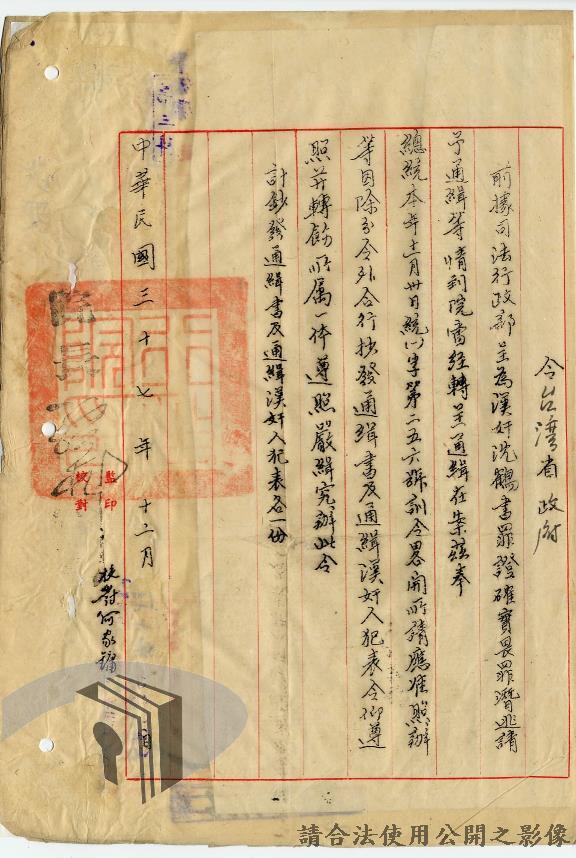 令台灣省政府
前據司法行政部呈為漢奸沈鶴書罪證確實畏罪潛逃請
予通緝等情到院當經轉呈通緝在案茲奉
總統本年十一月卅日統㈠字第二五六號訓令畧開所請應准照辦
等因除分令外合行抄發通緝書及通緝漢奸人犯表令仰遵
照并轉飭所属一体遵照嚴緝究辦此令
計鈔發通緝書及通緝漢奸人犯表各一份
中華民國三十七年十二月
日
監印
校對
校對何家
請合法使用公開之影像